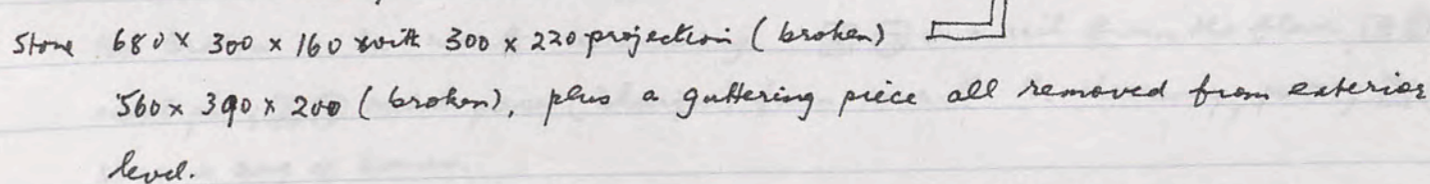 Stone 680 x 300 x 160 with 300 x 220 projection (broken)
560 x 390 x 200 (broken), plus a guttering piece all removed from exterior
level.